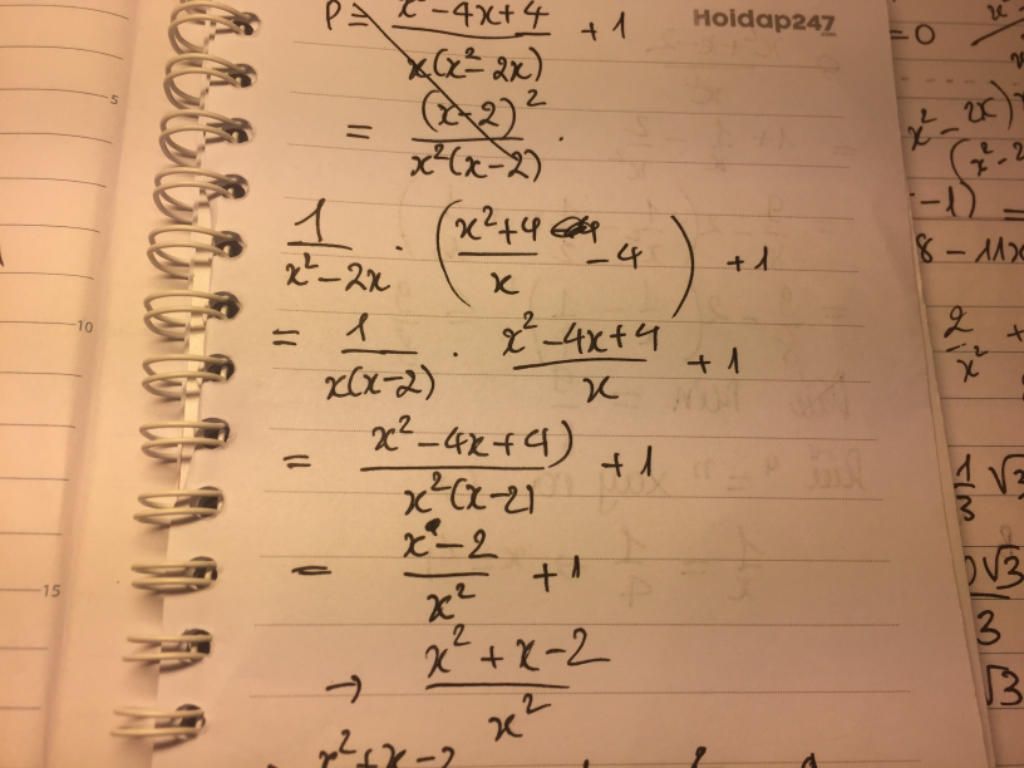 Hoidap247
P = x² - 4x + 4 / x(x² - 2x) + 1
= (x-2)² / x²(x-2) .
1 / x² - 2x . ( x² + 4 / x - 4 ) + 1
= 1 / x(x-2) . x² - 4x + 4 / x + 1
= x² - 4x + 4) / x²(x-2) + 1
= x - 2 / x² + 1
→ x² + x - 2 / x²
x² + x - 2
5
10
15
= 0
x² - 2x)
-1) =
8 - 11x
2 / x² +
1/3 √3
√3
3
√3